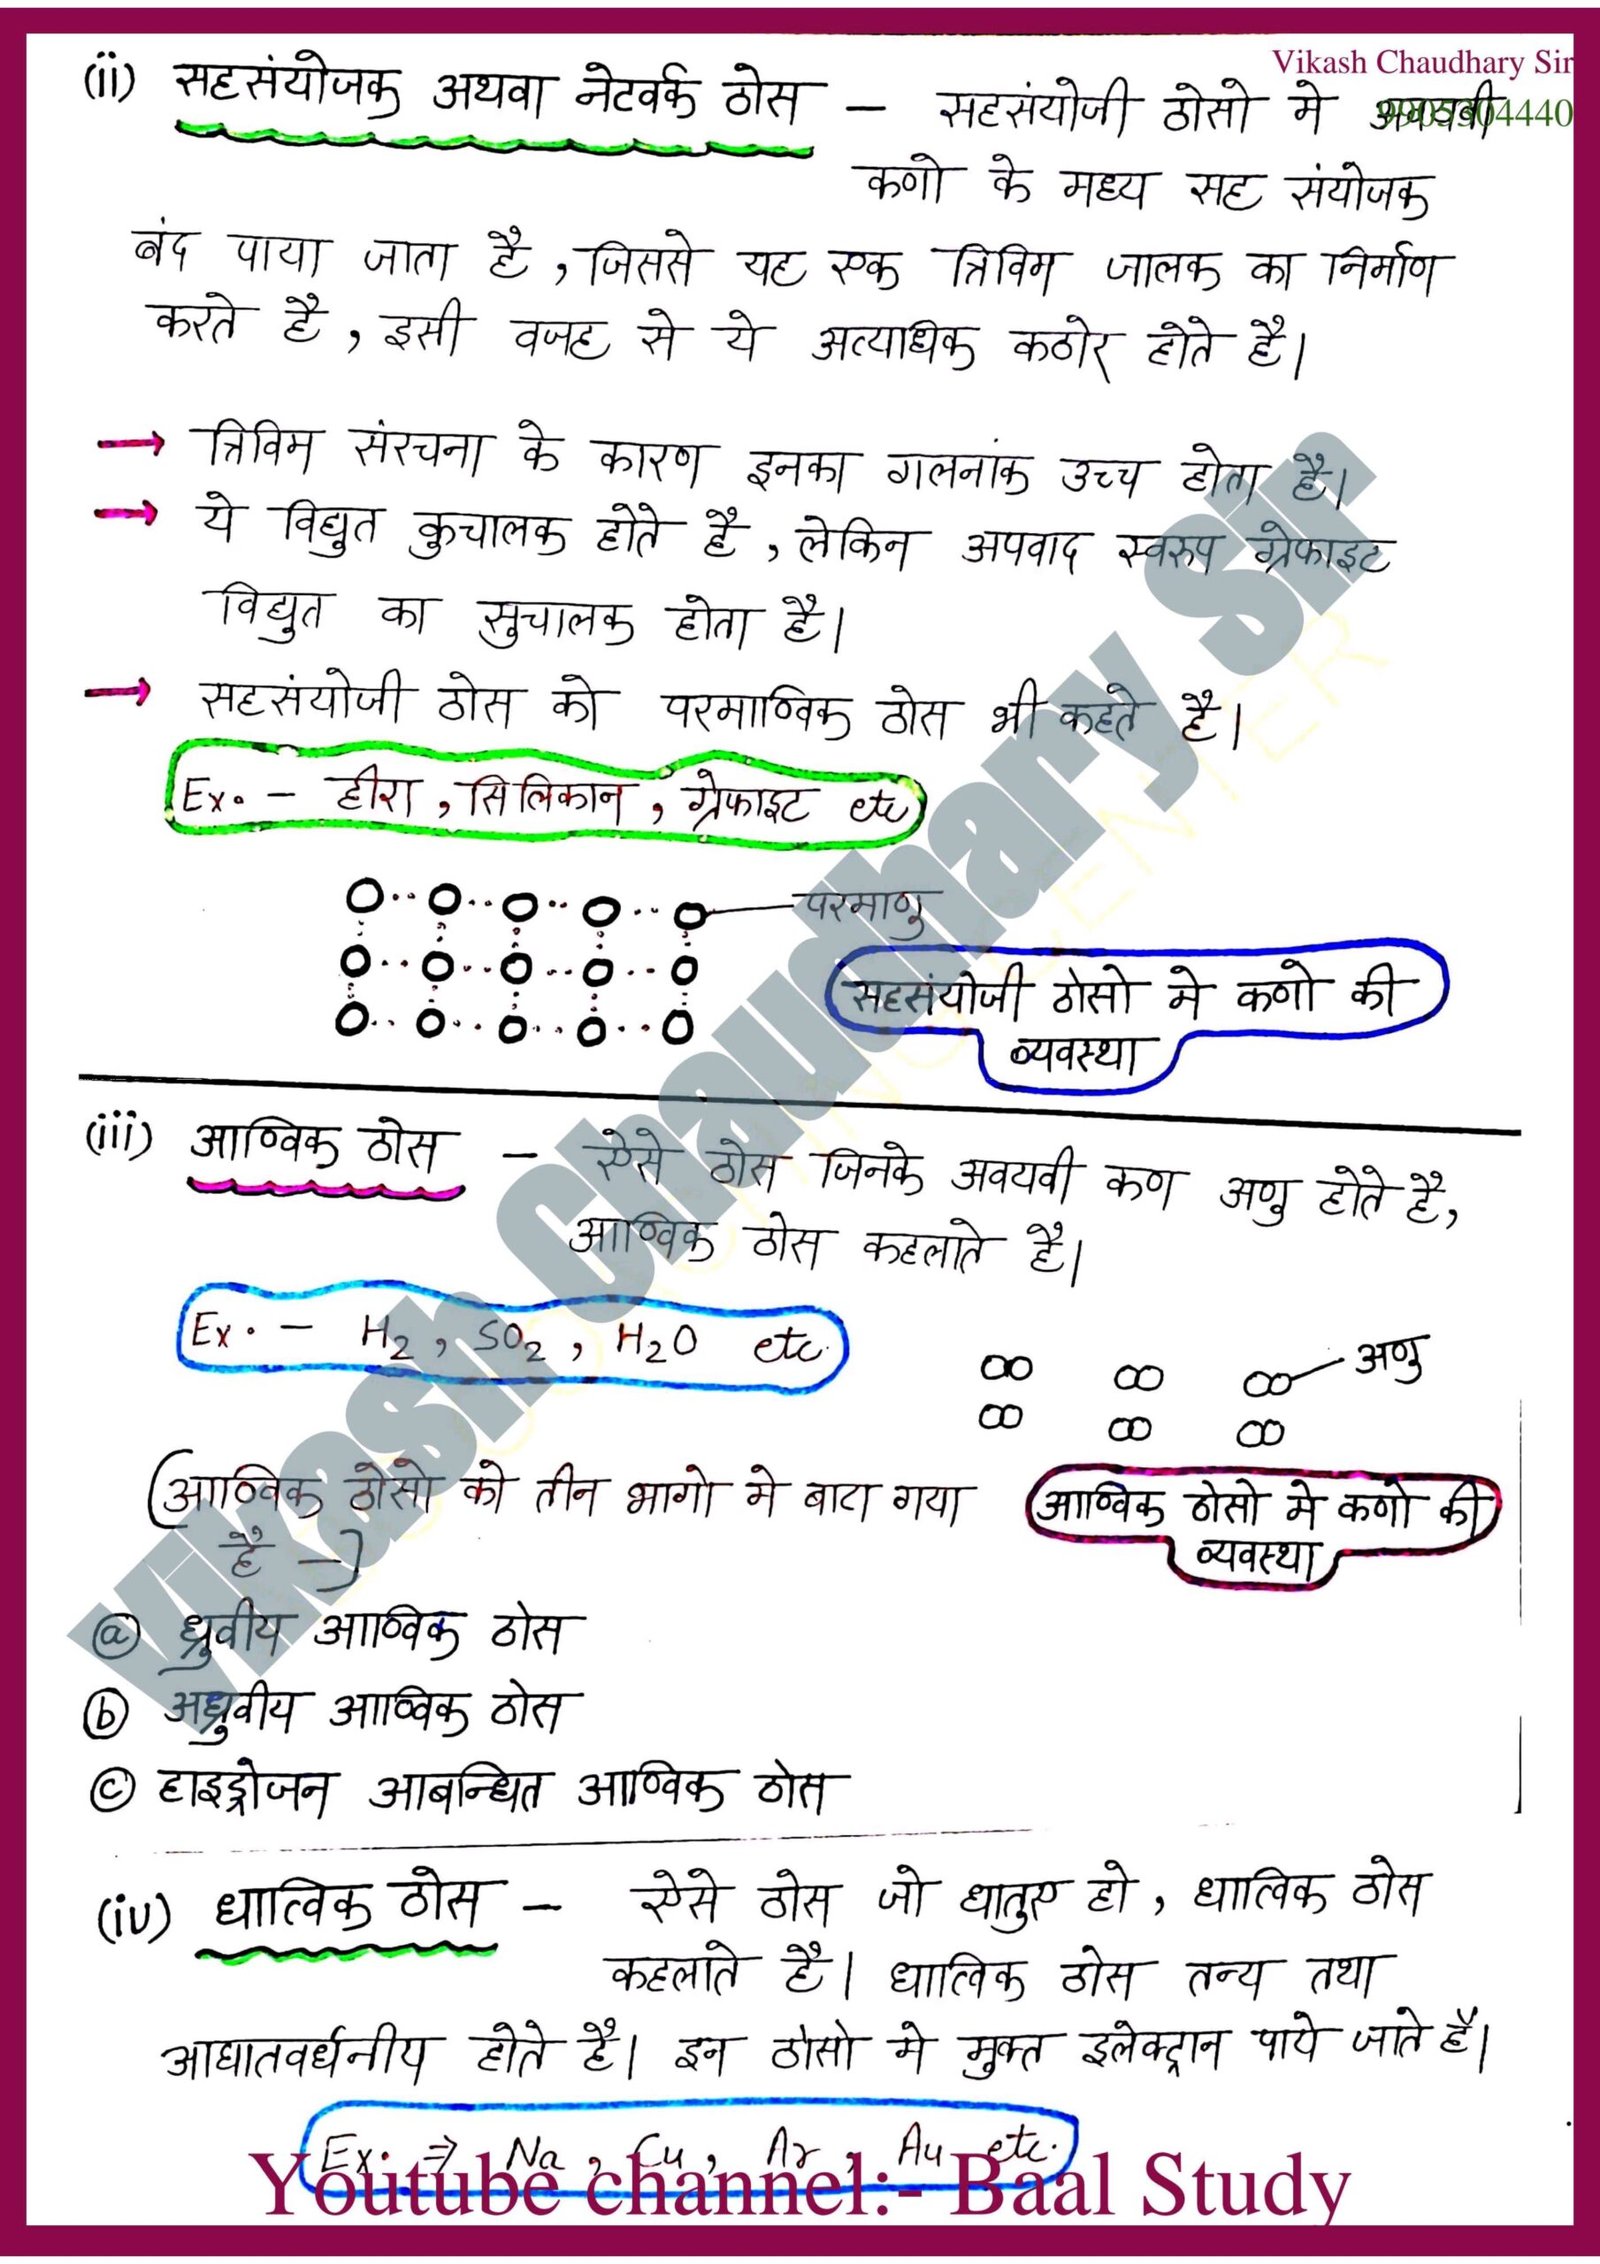 Vikash Chaudhary Sir
9905304440
(ii) सहसंयोजक अथवा नेटवर्क ठोस – सहसंयोजी ठोसो मे अवयवी
कणो के मध्य सह संयोजक
बंद पाया जाता है , जिससे यह एक त्रिविम जालक का निर्माण
करते है , इसी वजह से ये अत्याधिक कठोर होते है।
→ त्रिविम संरचना के कारण इनका गलनांक उच्च होता है।
→ ये विद्युत कुचालक होते है , लेकिन अपवाद स्वरुप ग्रेफाइट
विद्युत का सुचालक होता है।
→ सहसंयोजी ठोस को परमाण्विक ठोस भी कहते है।
Ex. – हीरा , सिलिकान , ग्रेफाइट etc
परमाणु
सहसंयोजी ठोसो मे कणो की
व्यवस्था
(iii) आण्विक ठोस – ऐसे ठोस जिनके अवयवी कण अणु होते है,
आण्विक ठोस कहलाते है।
Ex. – H2 , SO2 , H2O etc.
अणु
(आण्विक ठोसो को तीन भागो मे बाटा गया
है –)
आण्विक ठोसो मे कणो की
व्यवस्था
(a) ध्रुवीय आण्विक ठोस
(b) अध्रुवीय आण्विक ठोस
(c) हाइड्रोजन आबन्धित आण्विक ठोस
(iv) धात्विक ठोस – ऐसे ठोस जो धातुए हो , धात्विक ठोस
कहलाते है। धात्विक ठोस तन्य तथा
आघातवर्धनीय होते है। इन ठोसो मे मुक्त इलेक्ट्रान पाये जाते है।
Ex. ⇒ Na , Cu , Ar , Au etc.
Youtube channel:- Baal Study
Vikash Chaudhary Sir